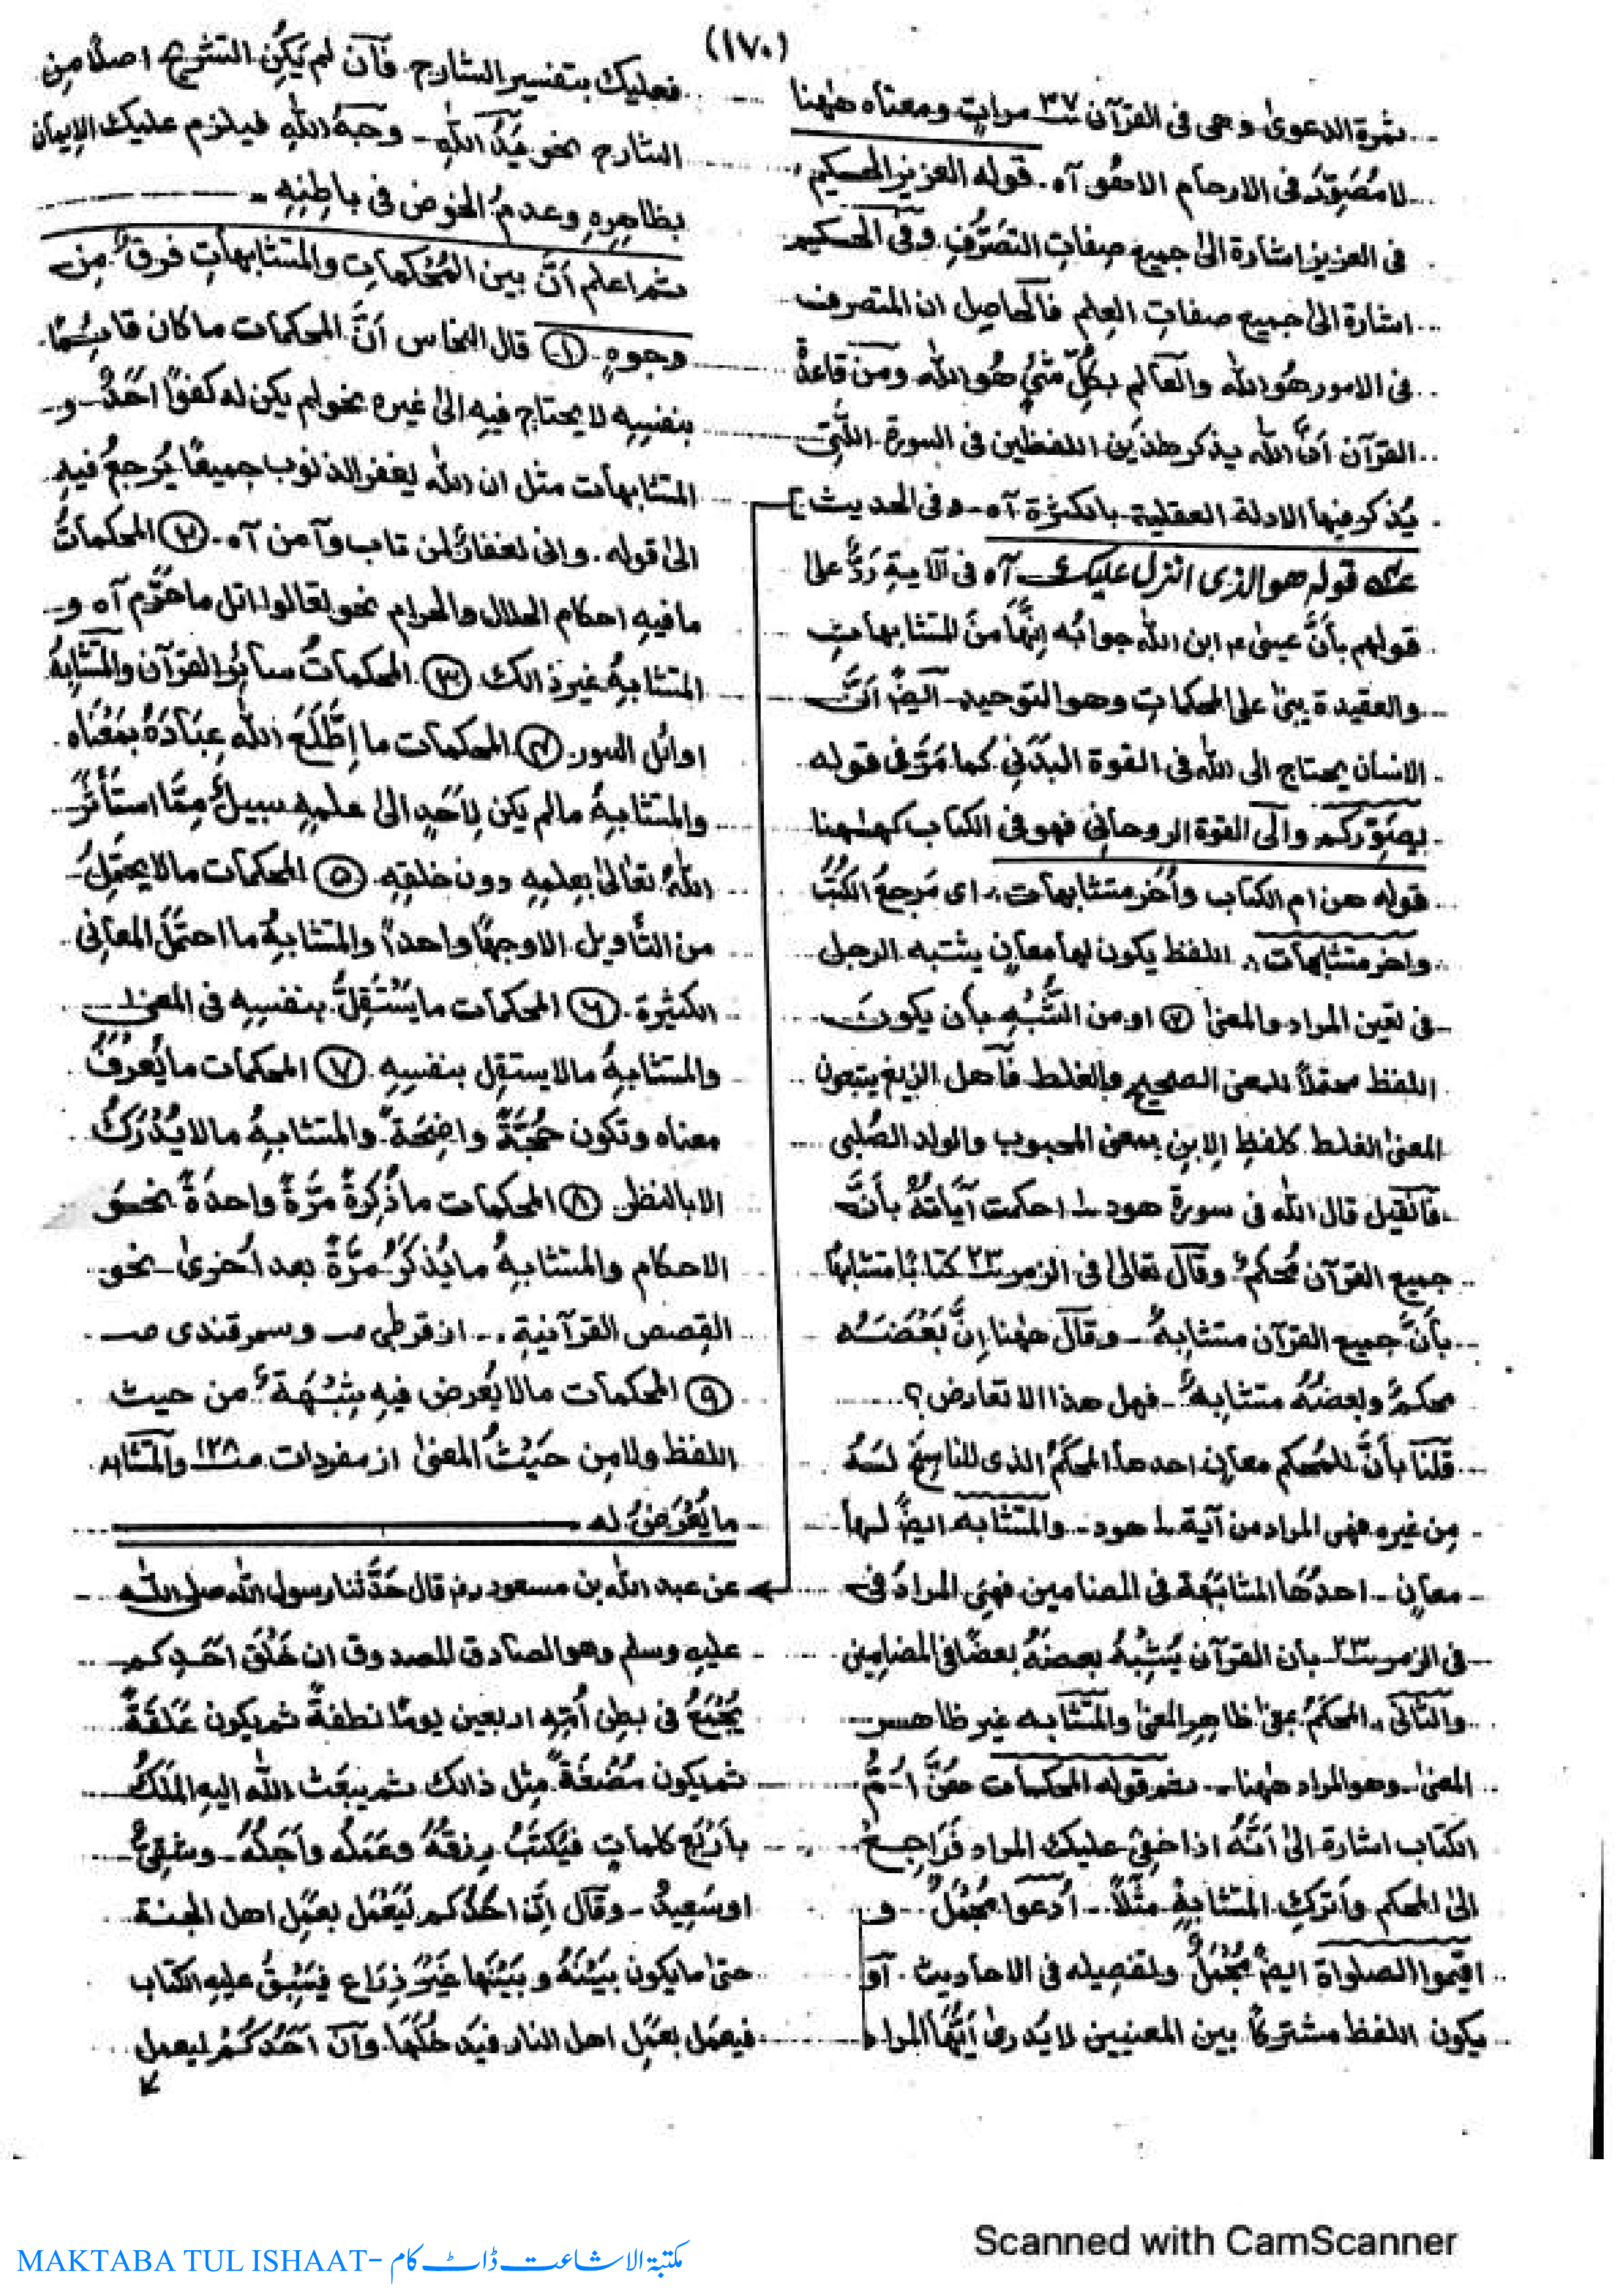 (١٧٠)
ثمرة الدعوىٰ وهى فى القرآن ٣٧ مراتٍ ومعناه هٰهنا
لا مُصَوِّرَ فى الارحام الا هُو آه. قوله العزيز الحكيم،
فى العزيز اشارة الىٰ جميع صِفاتِ التصَرُّفِ وفى الحكيم
اشارة الىٰ جميع صفاتِ العِلم فالحاصِل ان المتصرف
فى الامور هُو الله والعالم بكلِّ شئٍ هُو الله ومن قاعدة
القرآن أنَّ الله يذكر هٰذَين اللفظين فى السورة اللَّتِى
يُذكر فيها الادلة العقلية بالكثرة آه - وفى الحديث
قوله هو الذى انزل عليك آه فى الآية رَدٌّ علىٰ
قولهم بأنَّ عيسىٰ ابن الله جوابُه اِنَّها مِنَ المتشابهاتِ
والعقيدة يبنىٰ على المحكماتِ وهو التوحيد - ايضً أنَّ
الانسان يحتاج الى الله فى القوة البَدَنى كما مَرَّ فى قوله
يصَوِّركم والى القوة الروحانى فهو فى الكتاب كهٰهنا
قوله هن ام الكتاب وأُخَر متشابهات، اى مَرجعُ الكُتُب
واخر متشابهات، اللفظ يكون لها معانٍ يشتبه الرجل
فى تعَين المراد والمعنىٰ ② او من الشُّبْهِ بأن يكون
اللفظ محتملاً للمعنى الصحيح والغلط فاهل الزيغ يتبعون
المعنىٰ الغلط كلفظِ الابنِ بمعنى المحبوب والولد الصُلبى
فالقيل قال الله فى سورة هود ١ احكمت آيَاتُهُ بأنَّ
جميع القرآن مُحكمٌ وقال تعالىٰ فى الزمر ٢٣ كتابًا متشابهًا
بأنَّ جميع القرآن متشابهٌ - وقال هٰهنا اِنَّ بَعْضَهُ
محكمٌ وبعضُهُ متشابهٌ - فهل هذا الا تعارض؟
قلنا بأنَّ للمُحكم معانٍ احدها المحكَمُ الذى لا ناسِخ لهُ
مِن غيره فهى المراد من آية ١ هود - والمتشابه ايضً لها
معانٍ - احدُها المشابَهَة فى المضامين فهِىَ المرادُ فى
فى الزمر ٢٣ بأن القرآن يَشْبَهُ بعضهُ بعضًا فى المضامِين
والثانى، المحكَمُ بمعنىٰ ظاهِرِ المعنىٰ والمتَشابه غير ظاهر
المعنىٰ - وهو المراد هٰهنا - ثم قوله المحكمات هُنَّ اُمُّ
الكتاب اشارة الىٰ أنَّهُ اذا خَفِىَ عليك المراد فَرَاجِع
الىٰ المحكم وأترك المتشابِهَ مثلاً - أدعوا مُجْمَلٌ - و
اقيموا الصلواة ايضً مُجْمَلٌ وتفصيله فى الاحاديث. أو
يكون اللفظ مشتركًا بين المعنيين لا يُدرىٰ أيُّها المراد
فعليك بتفسير الشارح فان لم يَكُن التشريح اصلًا مِن
الشارح نحو يَدُ اللهِ - وجهُ اللهِ فيلزم عليك الايمان
بظاهِرِهِ وعدمُ الخوض فى باطِنِهِ -
ثم اعلم أنَّ بين المُحْكماتِ والمتشابهاتِ فرقٌ مِن
وجوهٍ. ① قال النحاس أنَّ المحكمات ما كان قائِمًا
بنفسِهِ لا يحتاج فيهِ الىٰ غيره نحو لم يكن له كفوًا احَدٌ - و
المتشابهات مثل ان الله يغفر الذنوب جميعًا يُرجعُ فيهِ
الىٰ قوله. وانى لغفارٌ لمن تاب وآمن آه - ② المحكماتُ
ما فيهِ احكام الحلال والحرام نحو تعالوا اتل ما حرَّم آه و
المتشابِهُ غير ذالك. ③ المحكماتُ سائرُ القرآن والمتشابِهُ
اوائل السور. ④ المحكمات ما اِطَّلَعَ اللهُ عِبَادَهُ بمَعْنَاه
والمتشابِهُ مالم يكن لِاَحَدٍ الىٰ علمِهِ سبيلٌ مِمَّا استَأثَرَ
اللهُ تعالىٰ بعِلمِهِ دون خلقِهِ ⑤ المحكمات ما لا يحتمِلُ
من التأويل الا وجهًا واحداً والمتشابِهُ ما احتمَلَ المعانى
الكثيرة. ⑥ المحكمات ما يَسْتَقِلُّ بنفسِهِ فى المعنىٰ
والمتشابِهُ مالا يستقِل بنفسِهِ. ⑦ المحكمات ما يُعرفُ
معناه وتكون حُجَّةً واضِحَةً والمتشابِهُ مالا يُدْرَكُ
الا بالنظر. ⑧ المحكمات ما ذُكِرَ مَرَّةً واحدَةً نحو
الاحكام والمتشابِهُ ما يُذكَرُ مرَّةً بعد أخرىٰ - نحو
القِصصِ القرآنيةِ، - از قرطبى ص وسمرقندى ص
⑨ المحكمات مالا يُعرض فيهِ شِبْهَةٌ من حيث
اللفظ ولا مِن حَيْثُ المعنىٰ از مفردات ١٢٨ والمتشابه
ما يُعْرَضُ له
عن عبد الله بن مسعود رض قال حَدَّثنا رسول الله صلى الله
عليهِ وسلم وهو الصادق المصدوق ان خَلْقَ اَحَدِكم
يُجْمَعُ فى بطنِ أُمِّهِ اربعين يومًا نطفةً ثم يكون عَلَقةً
ثم يكون مُضْغَةً مِثل ذالك ثم يبعَث الله اليهِ المَلَكُ
بأرْبَعِ كلماتٍ فيَكتَبُ رزقَهُ وعَمَلُه وأجَلُهُ - وشقِىٌّ
او سَعِيدٌ - وقال اِنَّ احَدُكم ليَعْمَل بعَمَلِ اهل الجنة
حتىٰ ما يكون بَيْنَهُ وبَيْنَها غَيْرُ ذِرَاعٍ فيَسْبِقُ عليهِ الكتاب
فيعمَل بعَمَلِ اهل النار فيَدخُلَها. وان اَحَدَكُمْ ليعمل
Scanned with CamScanner
MAKTABA TUL ISHAAT- مکتبۃ الاشاعت ڈاٹ کام